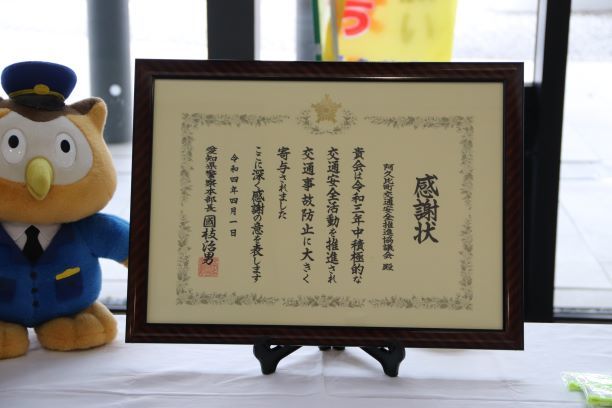 感謝状
阿久比町交通安全推進協議会 殿
貴会は令和三年中積極的な
交通安全活動を推進され
交通事故防止に大きく
寄与されました
ここに深く感謝の意を表します
令和四年四月一日
愛知県警察本部長 國枝治男